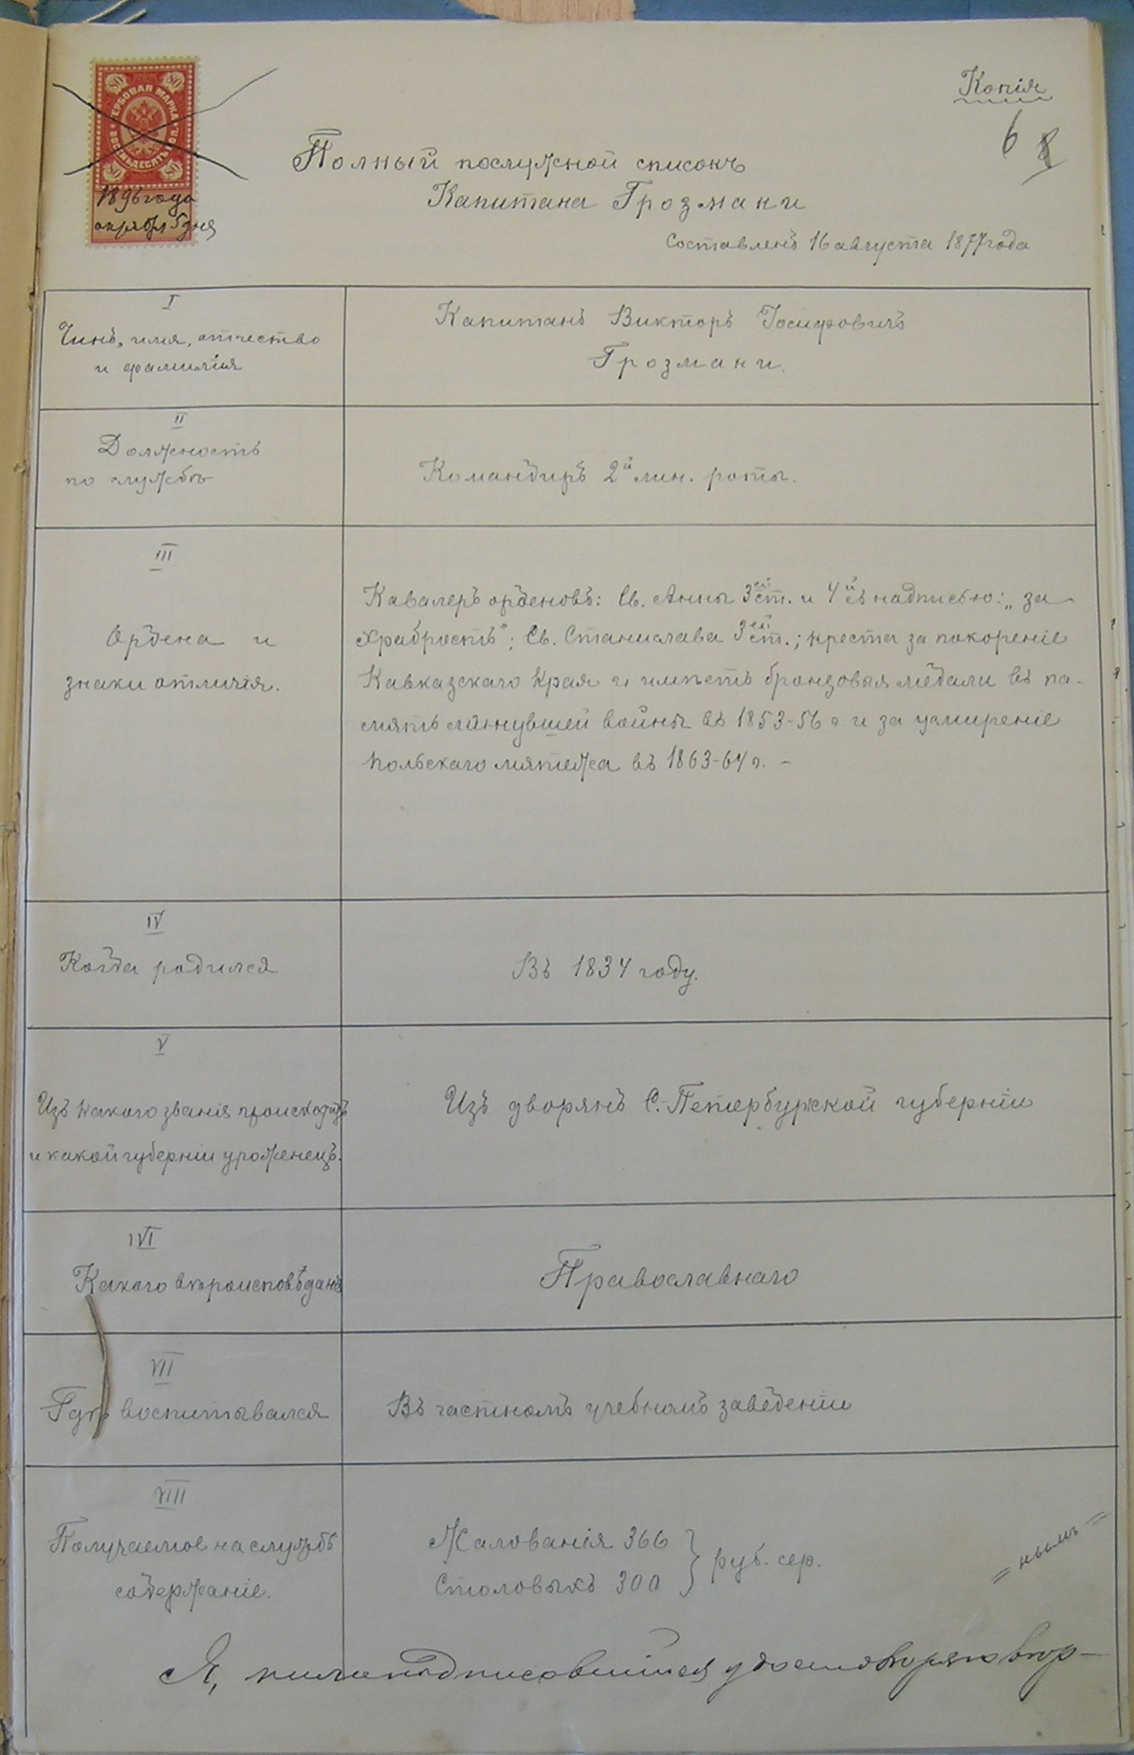 Копія
6 8
80 80
ГЕРБОВАЯ МАРКА
ВОСЕМЬДЕСЯТЪ КОП.
80 80
1896 года
апрѣля 5 дня
Полный послужной списокъ
Капитана Грозмани
Составленъ 16 августа 1877 года
I
Чинъ, имя, отчество
и фамилія
Капитанъ Викторъ Іосифовичъ
Грозмани.
II
Должность
по службѣ
Командиръ 2й лин. роты.
III
Ордена и
знаки отличія.
Кавалеръ орденовъ: Св. Анны 3ей ст. и 4й съ надписью: „за
храбрость“; Св. Станислава 3ей ст.; креста за покореніе
Кавказскаго края и имѣетъ бронзовыя медали въ па-
мять минувшей войны въ 1853-56 г. и за усмиреніе
польскаго мятежа въ 1863-64 г. –
IV
Когда родился
Въ 1834 году.
V
Изъ какого званія происходитъ
и какой губерніи уроженецъ.
Изъ дворянъ С.-Петербурской губерніи
VI
Какого вѣроисповѣданія
Православнаго
VII
Гдѣ воспитывался
Въ частномъ учебномъ заведеніи
VIII
Получаемое на службѣ
содержаніе.
Жалованія 366
Столовыхъ 300
руб. сер.
Я, нижеподписавшійся удостовѣряю вѣр-